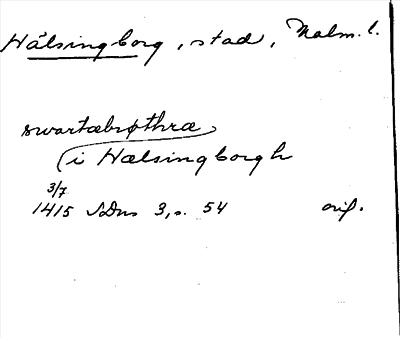 Hälsingborg, stad, Malm. l.
swartæbrøthræ
(i Hælsingborgh
3/7
1415 SDns 3, s. 54 orig.